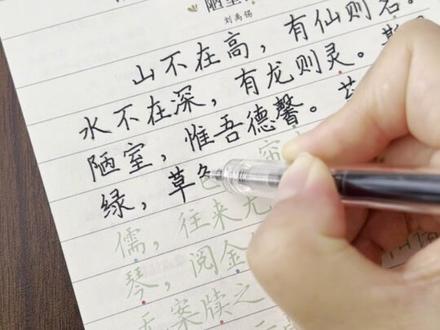 陋室
刘禹锡
山不在高，有仙则名。
水不在深，有龙则灵。
陋室，惟吾德馨。
绿，草色
儒，往来无
琴，阅金
无案牍之